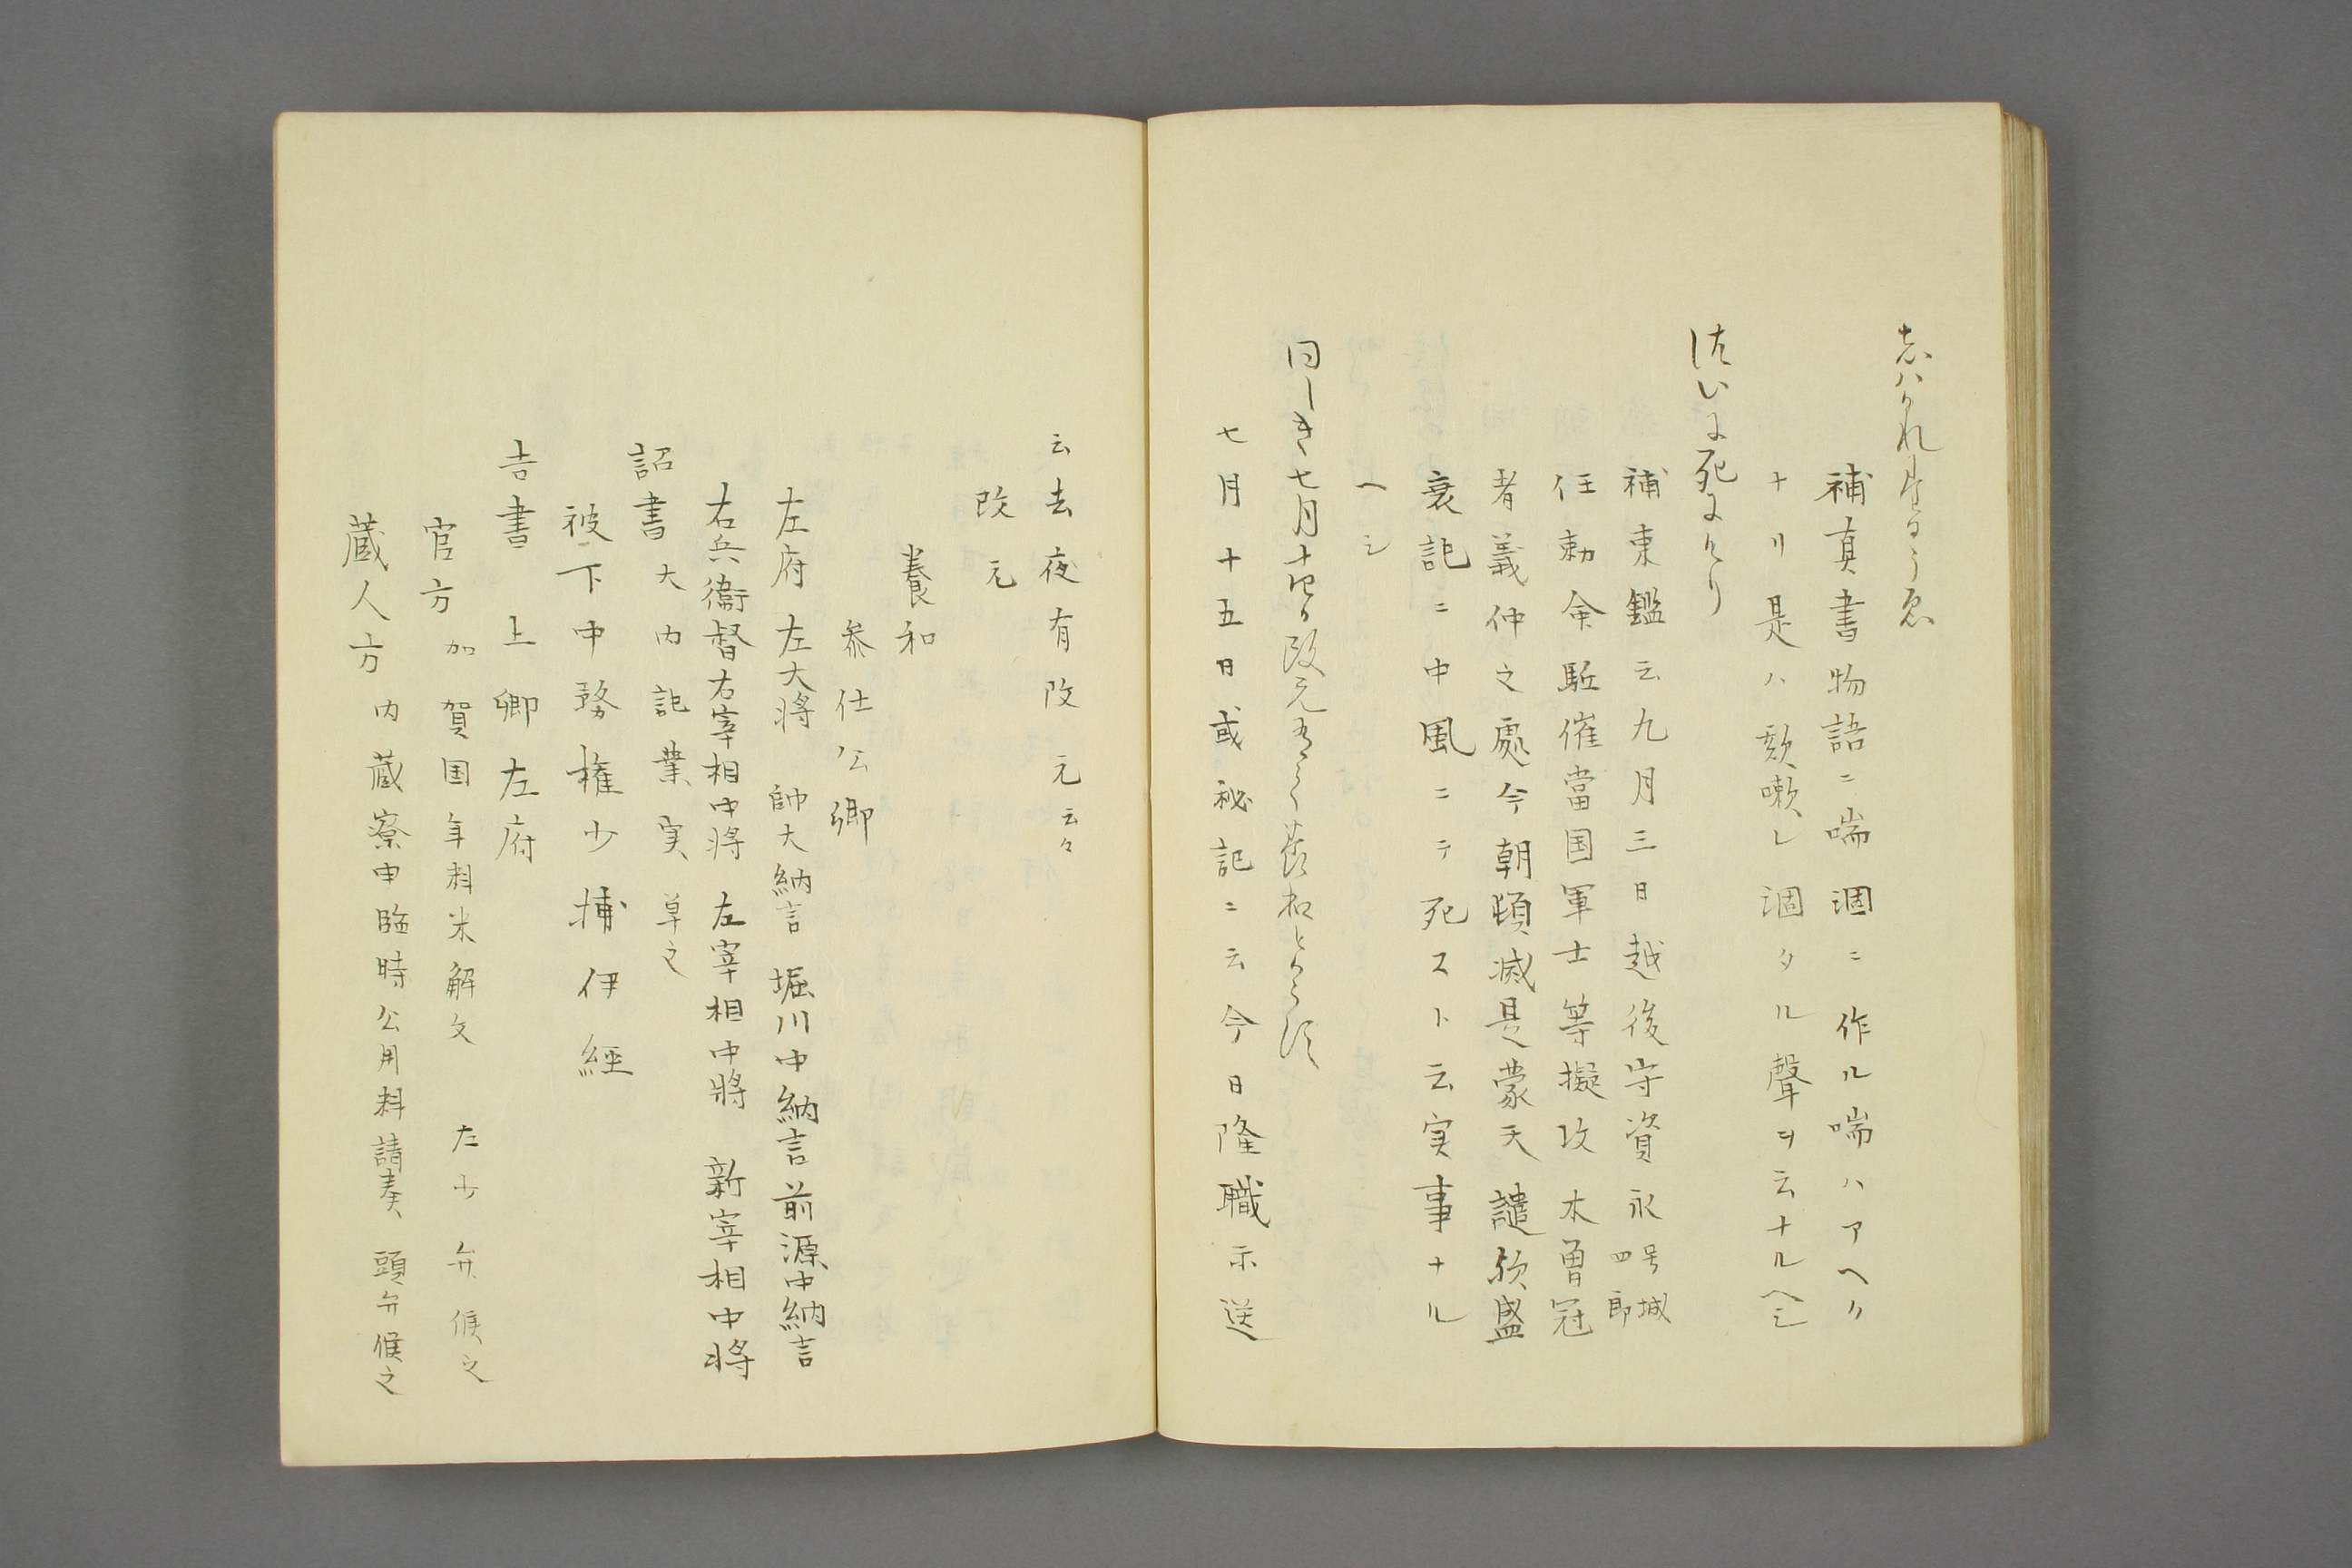 志ハかれたるこゑ
補真書物語ニ喘涸ニ作ル喘ハアヘク
ナリ是ハ欬嗽レ涸タル聲ヲ云ナルヘシ
ついに死にけり
補東鑑云九月三日越後守資永号城四郎
任勅命駈催當国軍士等擬攻木曽冠
者義仲之處今朝頓滅是蒙天譴欤盛
衰記ニ中風ニテ死スト云実事ナル
ヘシ
同しき七月十四日改元ありて養和とかうす
七月十五日或秘記ニ云今日隆職示送
云去夜有改元云々
改元
養和
参仕公卿
左府 左大将 帥大納言 堀川中納言 前源中納言
右兵衞督 右宰相中将 左宰相中將 新宰相中将
詔書大内記業実草之
被下中務権少捕伊經
吉書 上卿左府
官方加賀国年料米解文 左少弁候之
蔵人方内蔵寮申臨時公用料請奏 頭弁候之